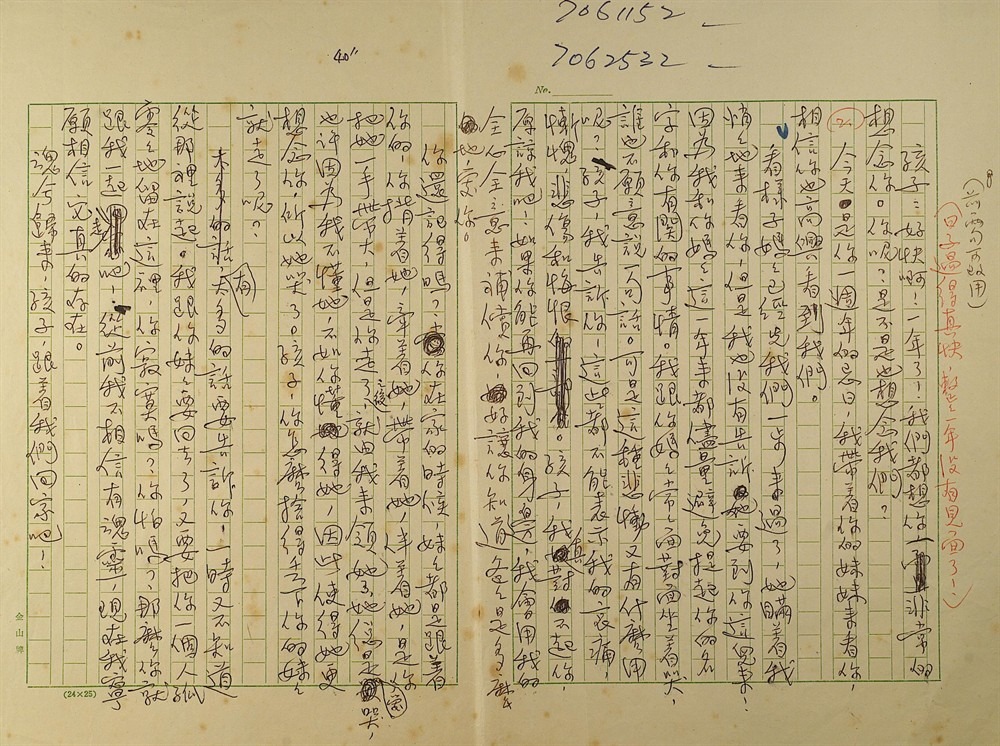 7061152 —
7062532 —
40"
No.
(前要可啟用)
(日子過得真快 整整一年沒有見面了!)
孩子:好快啊!一年了!我們都想你,非常的
想念你。你呢?是不是也想念我們?
(2) 今天是你一週年的忌日,我帶著你的妹妹來看你,
相信你也高興看到我們。
看樣子媽媽已經先我們一步來過了,她瞞著我
悄悄地來看你,但是我也沒有告訴她要到你這兒來!
因為我和你媽媽這一年來都儘量避免提起你的名
字和你有關的事情。我跟你媽媽常常面對面坐著哭,
誰也不願意說一句話。可是這種悲慟又有什麼用
呢?孩子,我告訴你,這些都不能表示我的哀痛,
慚愧,悲傷和悔恨。孩子,我真對不起你,
原諒我吧!如果你能再回到我的身旁,我會用我的
全心全意來補償你,好讓你知道爸爸是多麼
地愛你。
你還記得嗎?你在家的時候,妹妹都是跟著
你的,你揹著她,牽著她,帶著她,伴著她,是你
把她一手帶大,但是你走了以後,就由我來領她,她總是哭,
也許因為我不懂她,不如你懂得她,因此使得她更
想念你,所以她哭了。孩子,你怎麼捨得丟下你的妹妹
就走了呢?
有太多的話要告訴你,一時又不知道
從那裡說起。我跟你妹妹要回去了,又要把你一個人孤
零零地留在這裡,你寂寞嗎?你怕嗎?那麼你就
跟我一起走吧,從前我不相信有魂靈,現在我寧
願相信它真的存在。
魂兮歸來,孩子,跟著我們回家吧!
(24×25)
金山牌